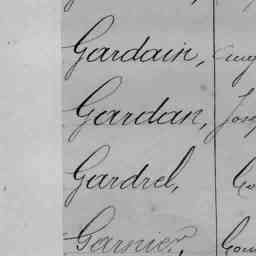 Gardain,
Gardan,
Gardrel,
Garnier,